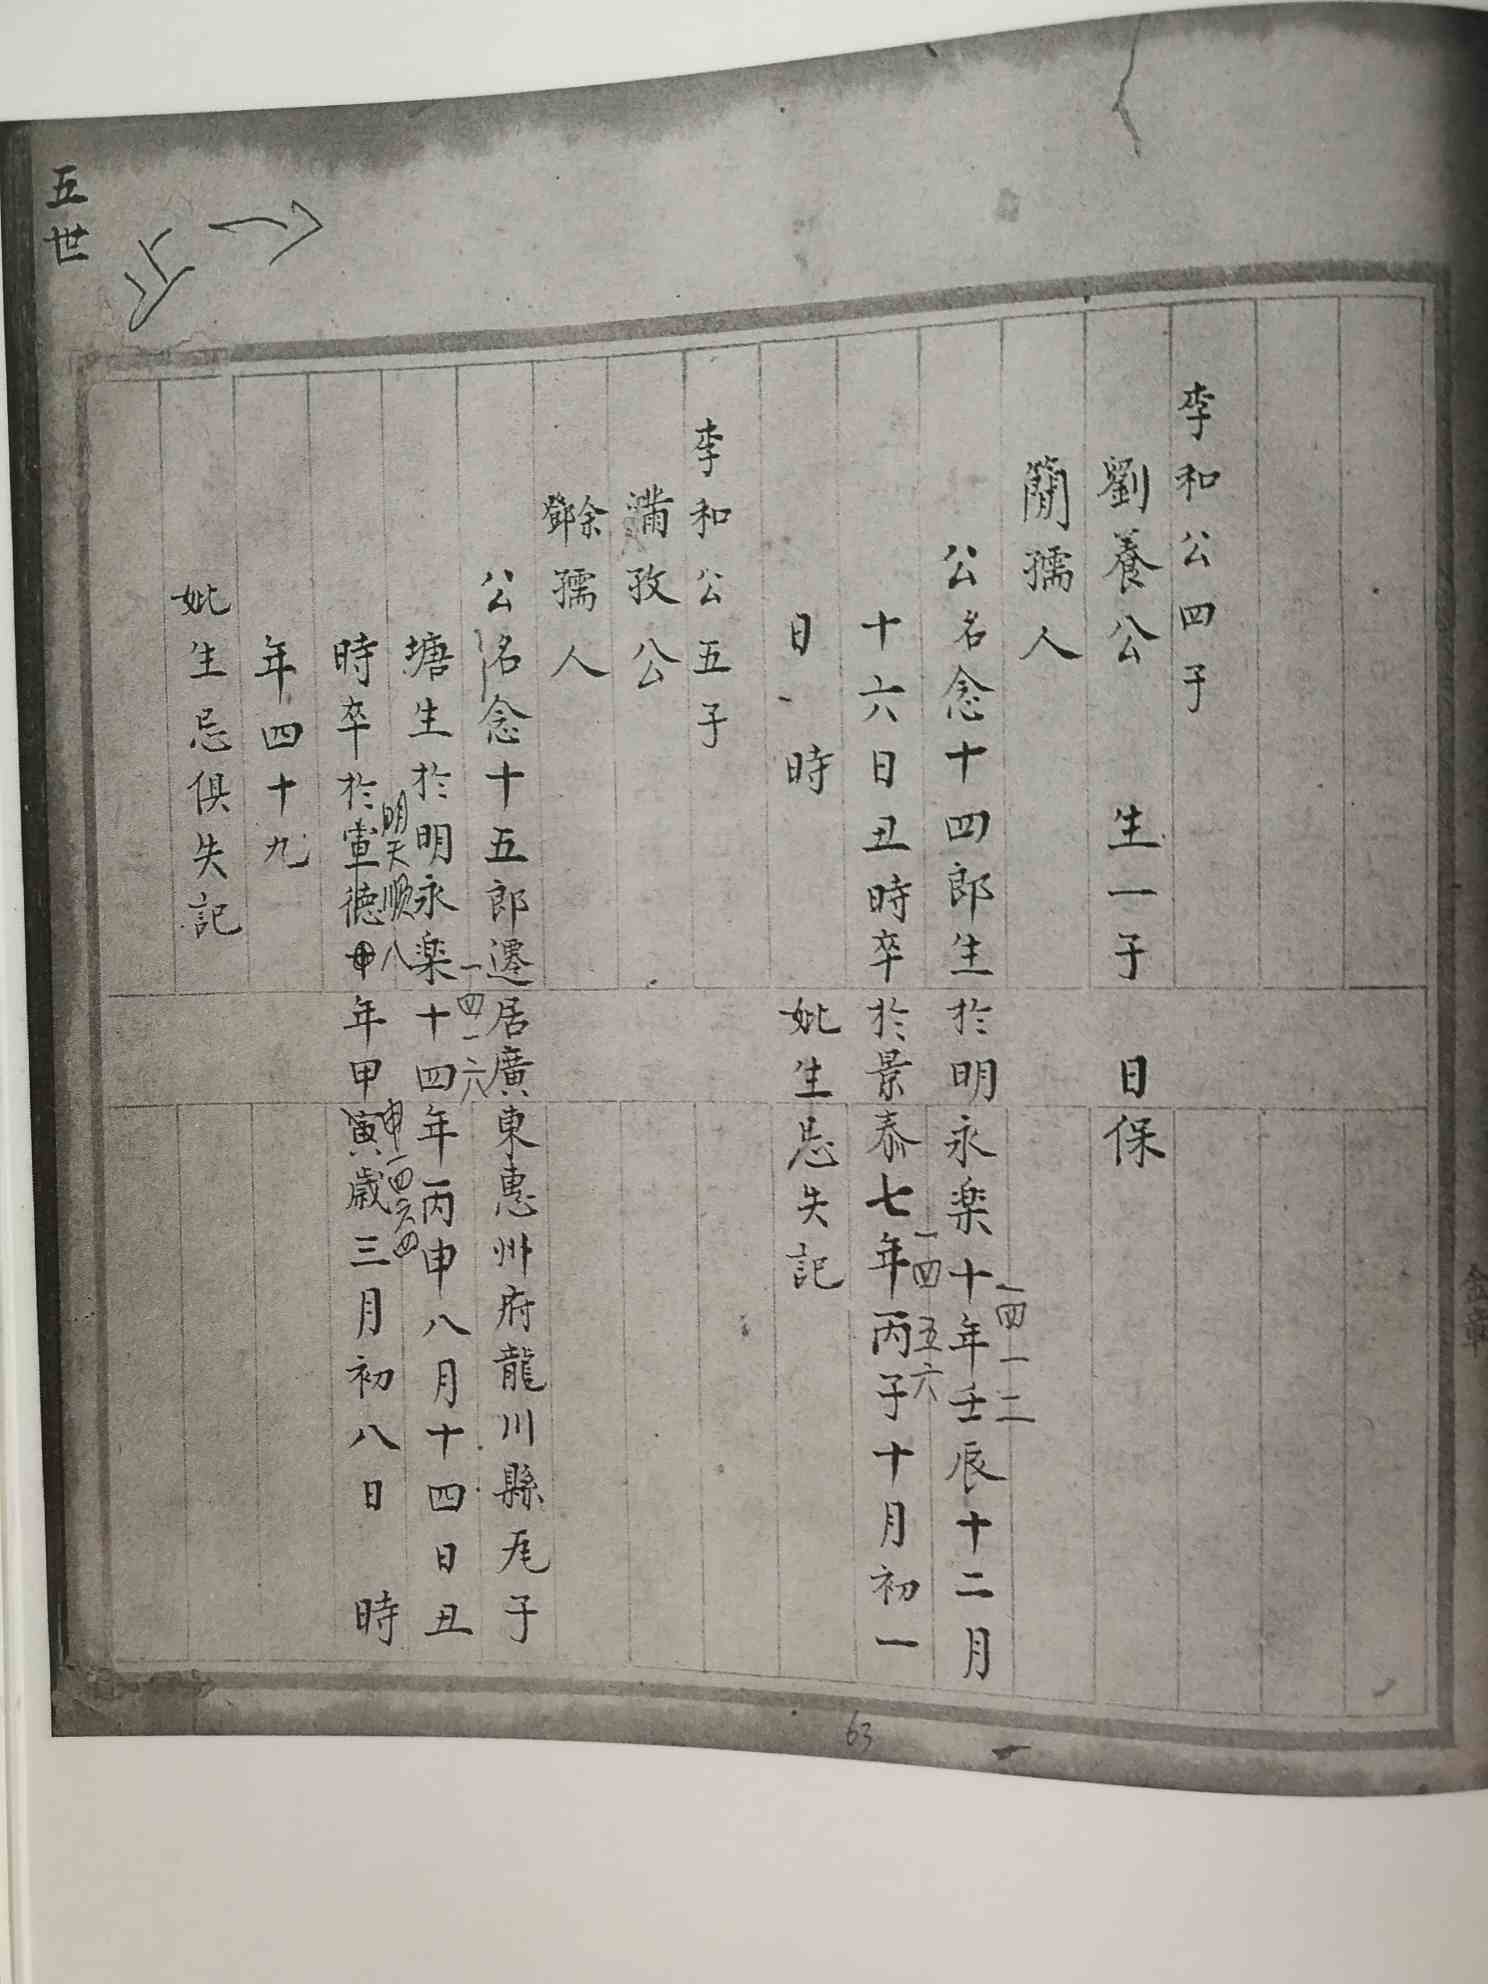 李和公四子
劉養公 生一子 日保
簡孺人
公名念十四郎生於明永楽十年壬辰十二月
一四一二
十六日丑時卒於景泰七年丙子十月初一
一四五六
日 時 妣生忌失記
李和公五子
滿孜公
余鄧孺人
公名念十五郎遷居廣東惠州府龍川縣凥子
塘生於明永楽十四年丙申八月十四日丑
一四一六
時卒於 德 年甲寅歲三月初八日 時
明天順八
申一四六四
年四十九
妣生忌俱失記
五世
63